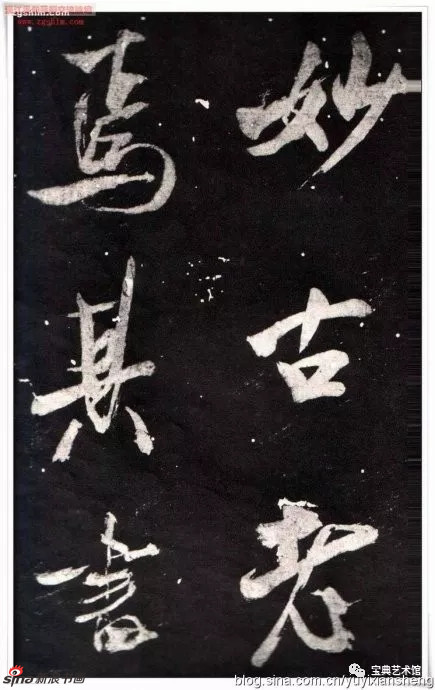 妙古老
焉其
sina新浪书画
宝典艺术馆
blog.sina.com.cn/yuyixiansheng